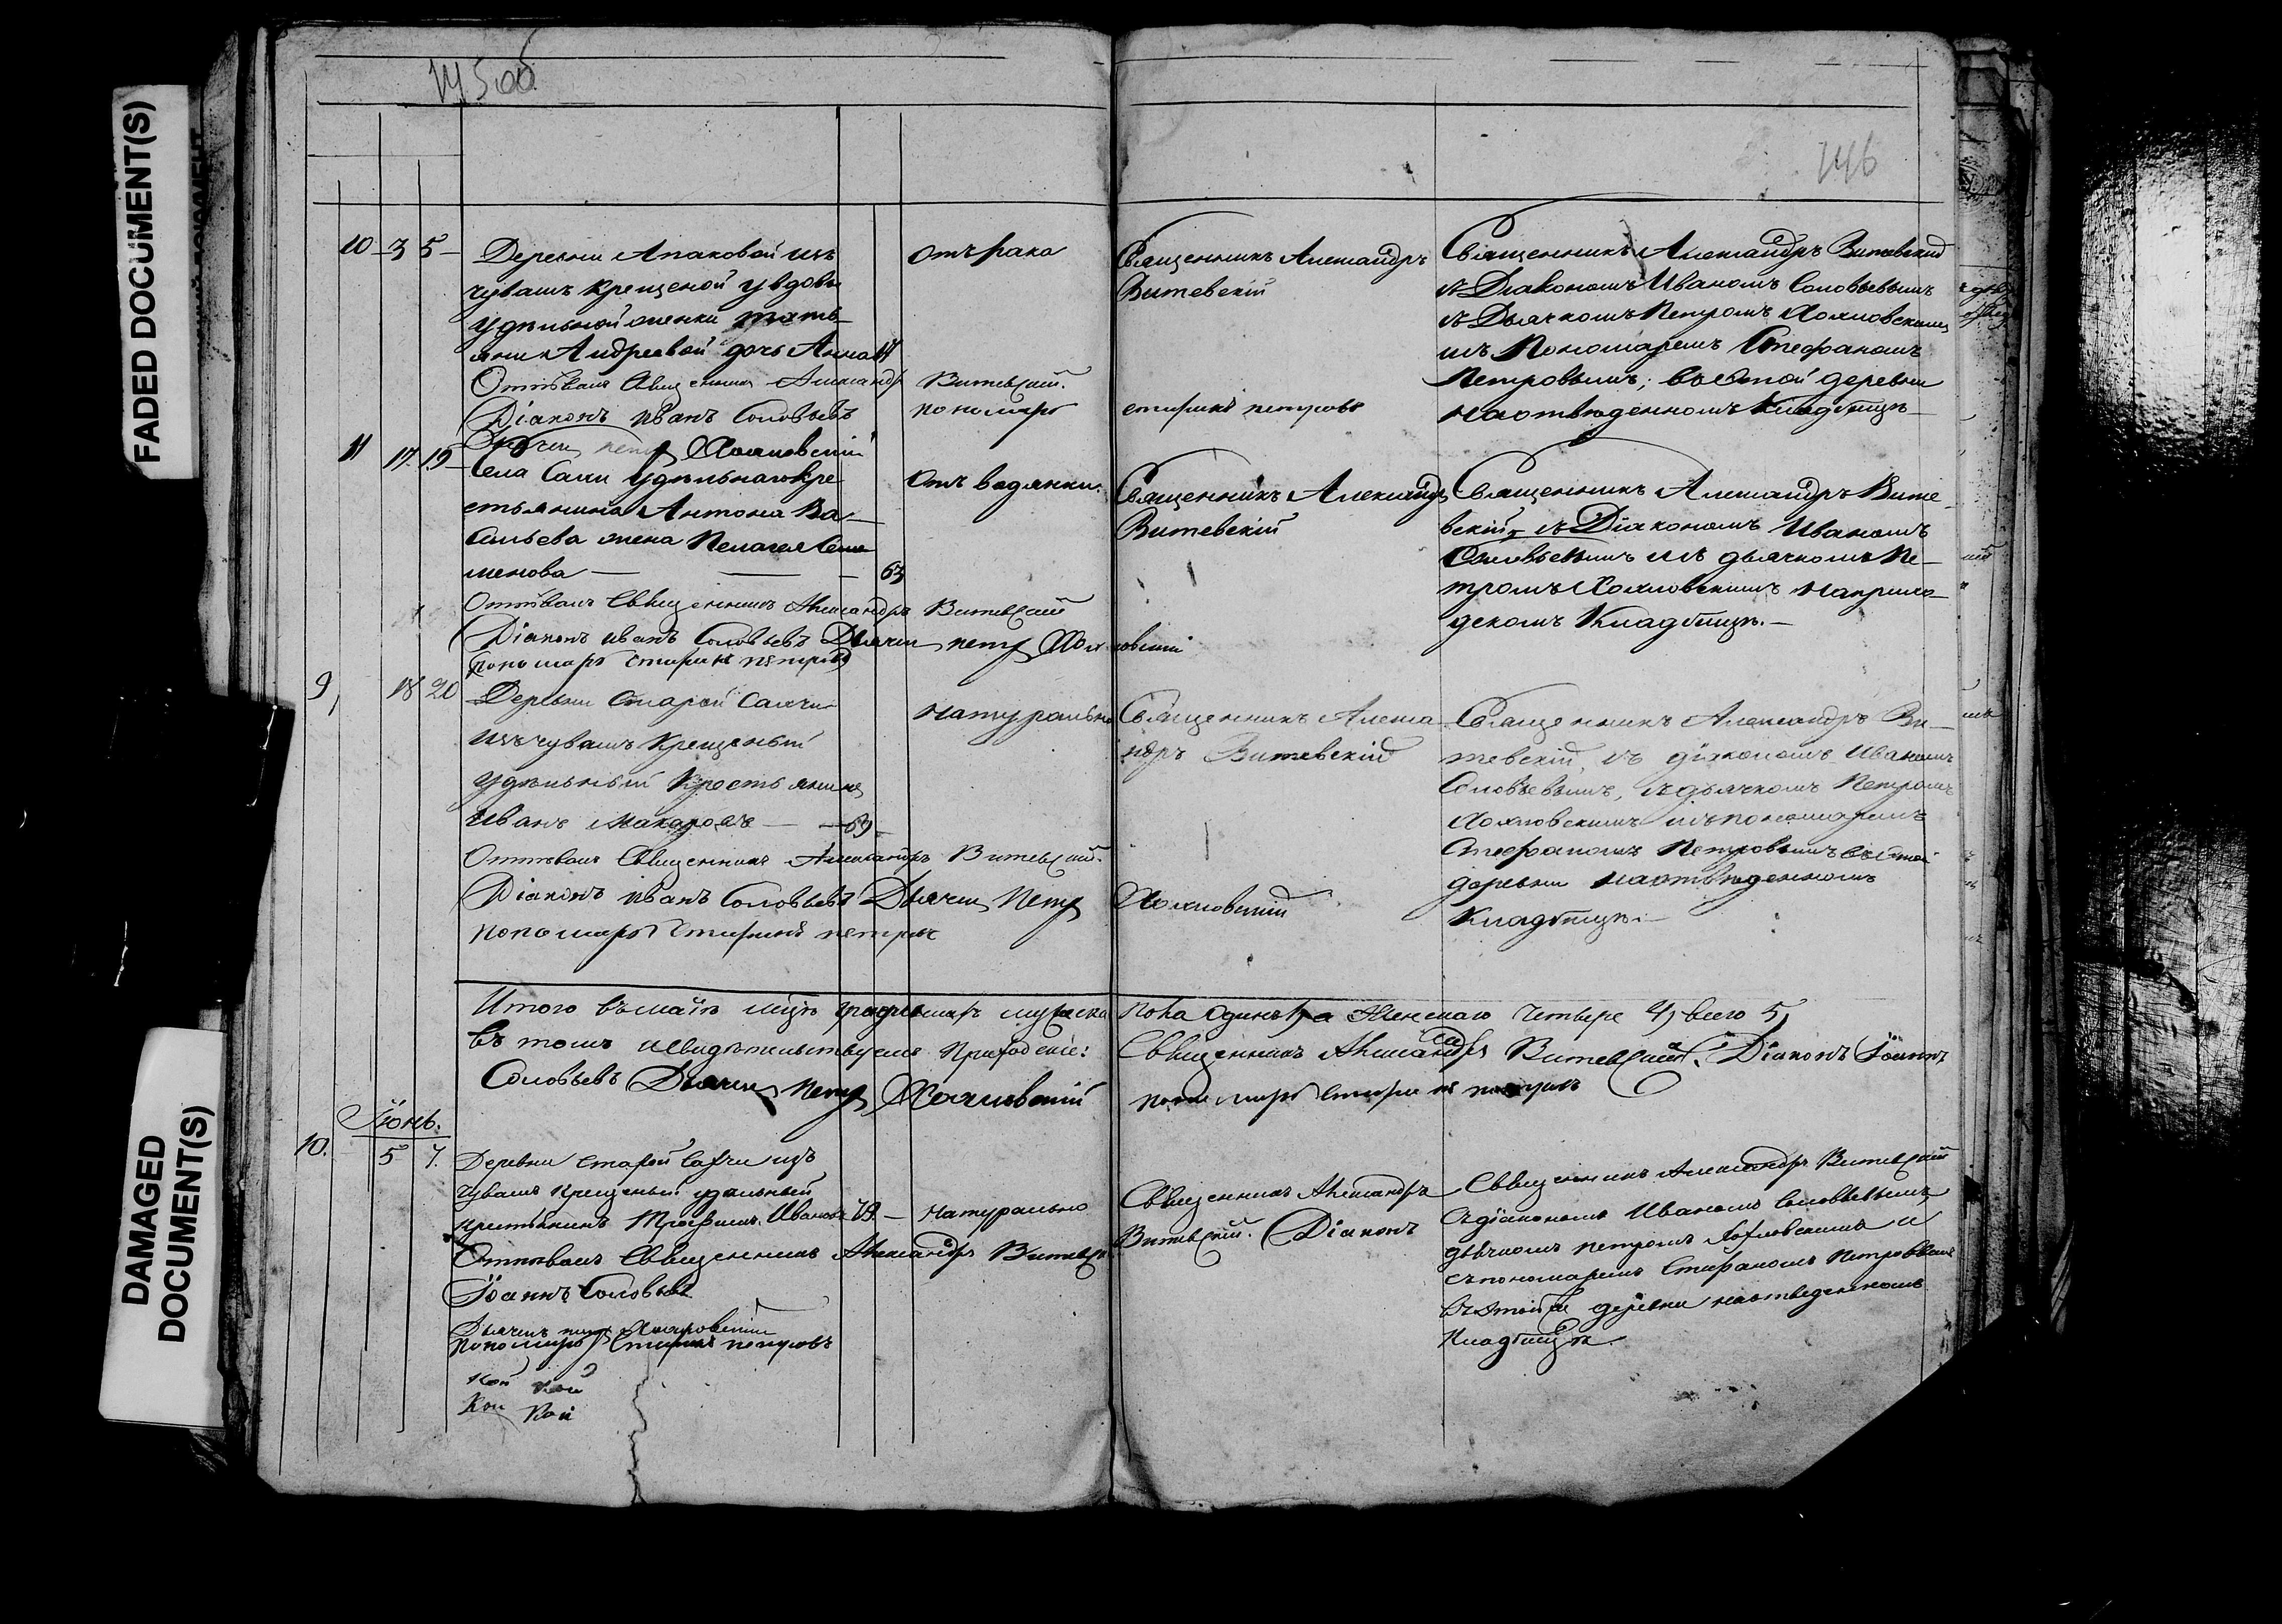 FADED DOCUMENT(S)
DAMAGED
DOCUMENT(S)
145 об
146
10 3 5
Деревни Апаковой изъ
чувашъ крещеной у вдовы
удѣльной женки Тать
яны Андреевой дочь Анна 14
Отъ рака
Священникъ Александръ
Витевскій
Священникъ Александръ Витевскій
съ Діакономъ Иваномъ Соловьевымъ
съ Дьячкомъ Петромъ
Пономаремъ Стефаномъ
Петровымъ, въ деревни
на отведенномъ Кладбищѣ
Отпѣвалъ Священникъ Александръ Витевскій.
Діаконъ Иванъ Соловьевъ пономарь Стефанъ Петровъ
Дьячекъ Петръ
11 17 19
Села Удѣльнаго кре
стьянина Антона Ва-
сильева жена Пелагея Се
менова 63
Отъ водянки.
Священникъ Александръ
Витевскій
Священникъ Александръ Вите
вскій съ Діакономъ Иваномъ
Соловьевымъ и съ дьячкомъ Пе-
тромъ на приход
скомъ Кладбищѣ.
Отпѣвалъ Священникъ Александръ Витевскій
Діаконъ Иванъ Соловьевъ Дьячекъ Петръ
Пономарь Стефанъ Петровъ
9, 18 20
Деревни Старой
изъ чувашъ крещеный
удѣльный Крестьянинъ
Иванъ Макаровъ 69
Натурально
Священникъ Алекса
ндръ Витевскій
Священникъ Александръ Ви-
тевскій, съ діакономъ Иваномъ
Соловьевымъ, съ дьячкомъ Петромъ
и съ пономаремъ
Стефаномъ Петровымъ въ
деревни на отведенномъ
Кладбищѣ.
Отпѣвалъ Священникъ Александръ Витевскій.
Діаконъ Иванъ Соловьевъ Дьячекъ Петръ
пономарь Стефанъ Петровъ
Итого въ маѣ мцѣ умершихъ мужеска пола одинъ 1, а Женскаго четыре 4, всего 5,
Въ томъ и свидѣтельствуемъ Приходскіе: Священникъ Александръ Витевскій. Діаконъ Іоаннъ
Соловьевъ Дьячекъ Петръ пономарь Стефанъ Петровъ
Іюнь.
10. 5 7.
Деревни Старой изъ
чувашъ крещеный удѣльный
крестьянинъ Трофимъ Ивановъ 49
Натурально
Священникъ Александръ
Витевскій. Діаконъ
Священникъ Александръ Витевскій
съ діакономъ Иваномъ Соловьевымъ
дьячкомъ Петромъ и
съ пономаремъ Стефаномъ Петровымъ
въ этой же деревни на отведенномъ
Кладбищѣ.
Отпѣвалъ Священникъ Александръ Витевск
Іоаннъ Соловьевъ
Дьячекъ Петръ
пономарь Стефанъ Петровъ
Кой Кой
Кои Кой